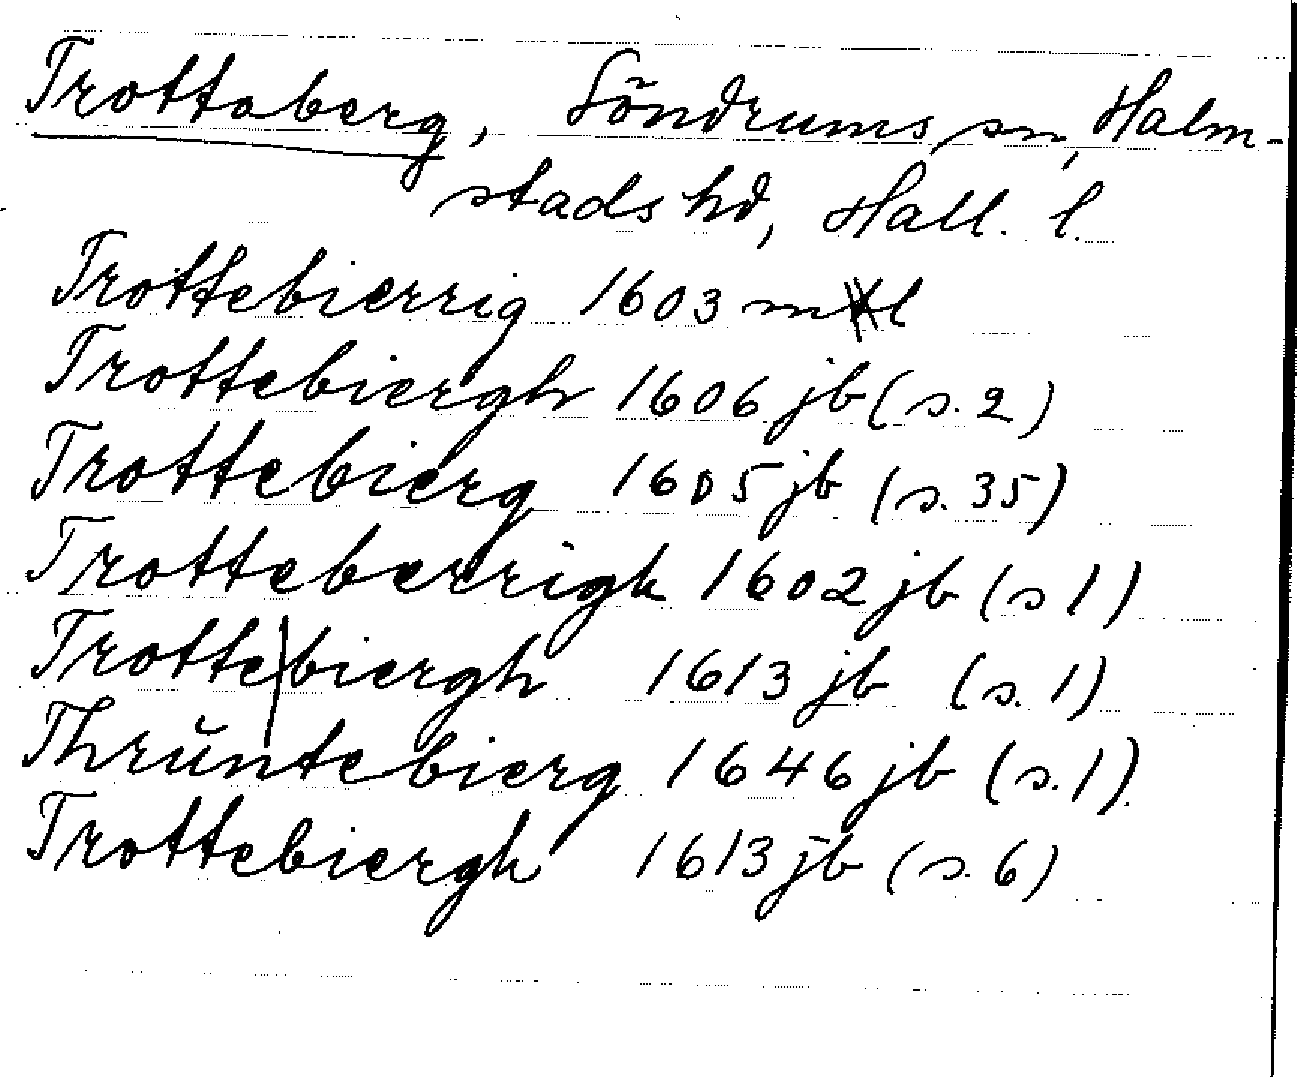 Trottaberg, Söndrums sn, Halm-
stads hd, Hall. l.
Trottebierrig 1603 ml
Trottebiergh 1606 jb (s. 2)
Trottebierg 1605 jb (s. 35)
Trotteberrigh 1602 jb (s 1)
Trottebiergh 1613 jb (s. 1)
Thrŭntebierg 1646 jb (s. 1)
Trottebiergh 1613 jb (s. 6)